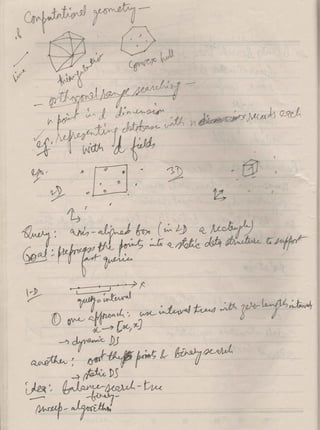 Computational geometry —
line
triangulation
Convex hull
— orthogonal range searching —
n point in d dimension
eg. representing database with n records each
with d fields
2D
3D
Query: axis-aligned box (in 2D a rectangle)
Goal: preprocess the points into a static data structure to support
fast queries
1-D
x
query = interval
① one approach: use interval trees with zero-length intervals
x → [x, x]
→ dynamic DS
another: sort the points & binary search
→ static DS
idea: balance-search-tree
binary
sweep-algorithm